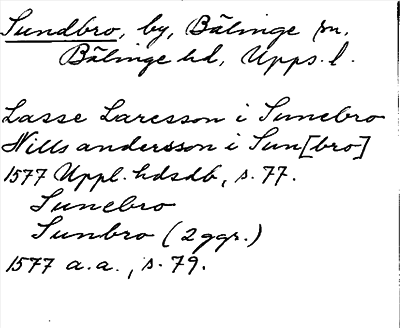 Sundbro, by, Bälinge sn.
Bälinge hd, Upps. l.
Lasse Larsson i Sunebro
Nills andersson i Sun[bro]
1577 Uppl. hdsdb, s. 77.
Sunebro
Sunbro (2 ggr.)
1577 a.a., s. 79.